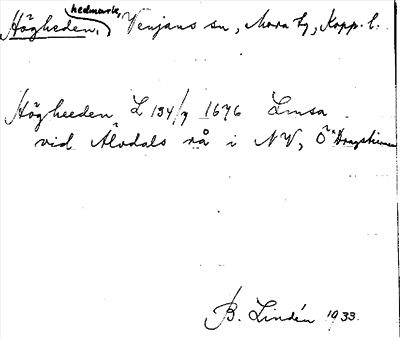 Högheden, hedmark, Venjans sn, Mora tg, Kopp. l.
Högheeden L 134/7 1676 Limsa
vid Älvdals rå i NV, Ö
B. Lindén 1933.